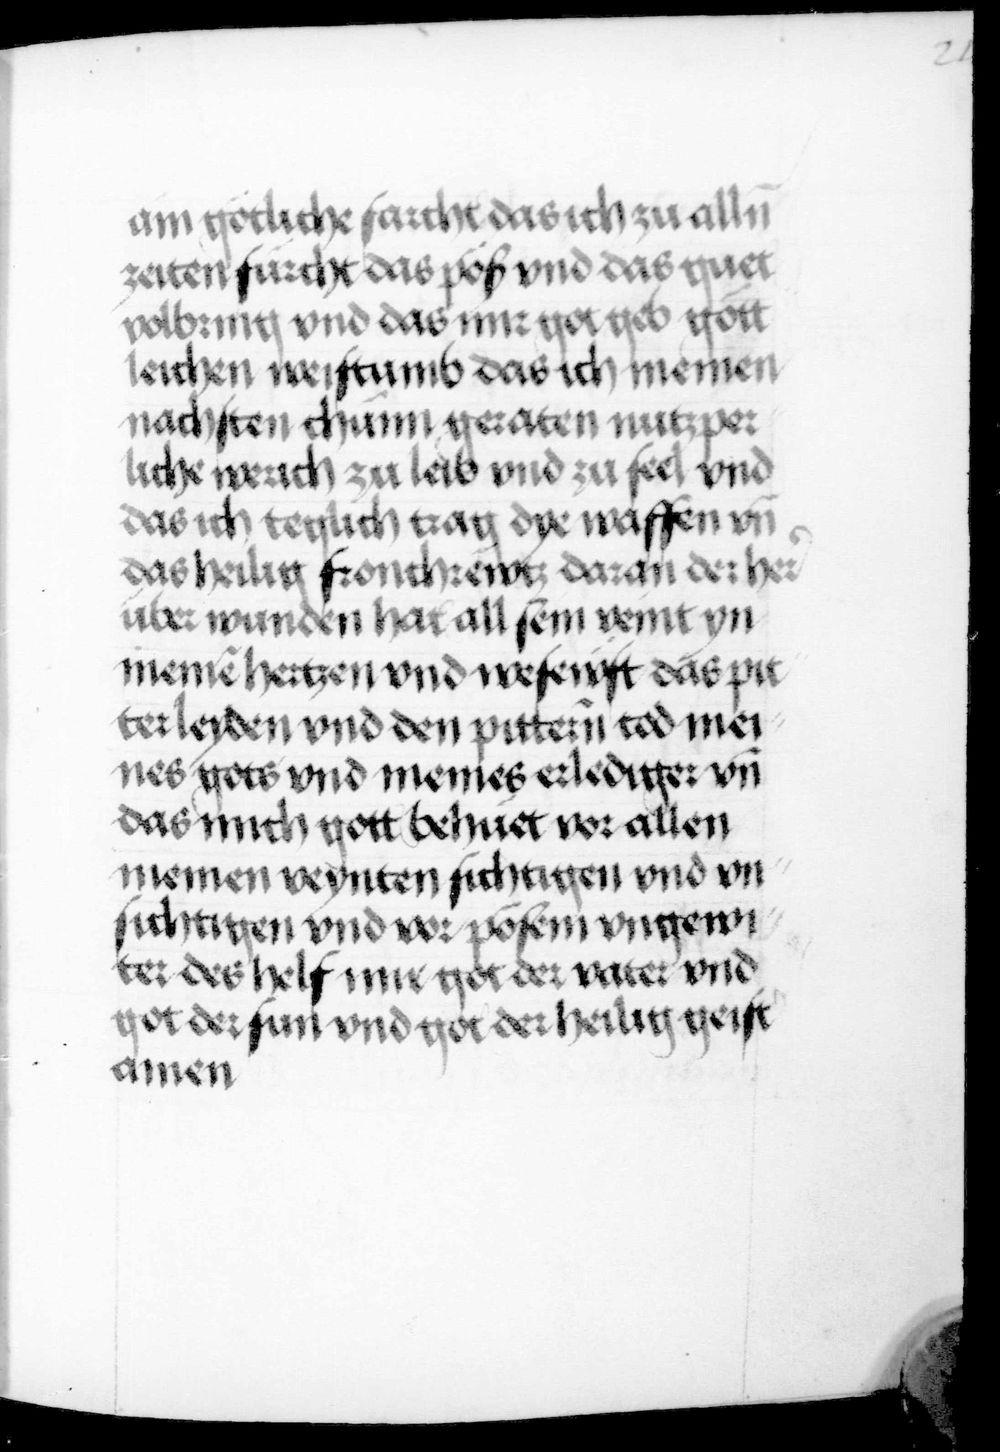 21
ain götliche farcht das ich zu alln̄
zeiten fürcht das pöß vnd das guet
volbring vnd das mir got geb gött
leichen weistumb das ich meinen
nachsten chünn geraten nutzper
liche werich zu leib vnd zu seel vnd
das ich teglich trag dye waffen vn̄
das heilig fronchrewtz daran der her
über wunden hat all sein veint yn
meinē hertzen vnd das pit
ter leyden vnd den pittern̄ tod mei〃
nes gots vnd meines erlediger vn̄
das mich gott behüet vor allen
meinen veynten sichtigen vnd vn〃
sichtigen vnd vor pösem vngewi〃
ter des helf mir got der vater vnd
got der sun vnd got der heilig geist
amen